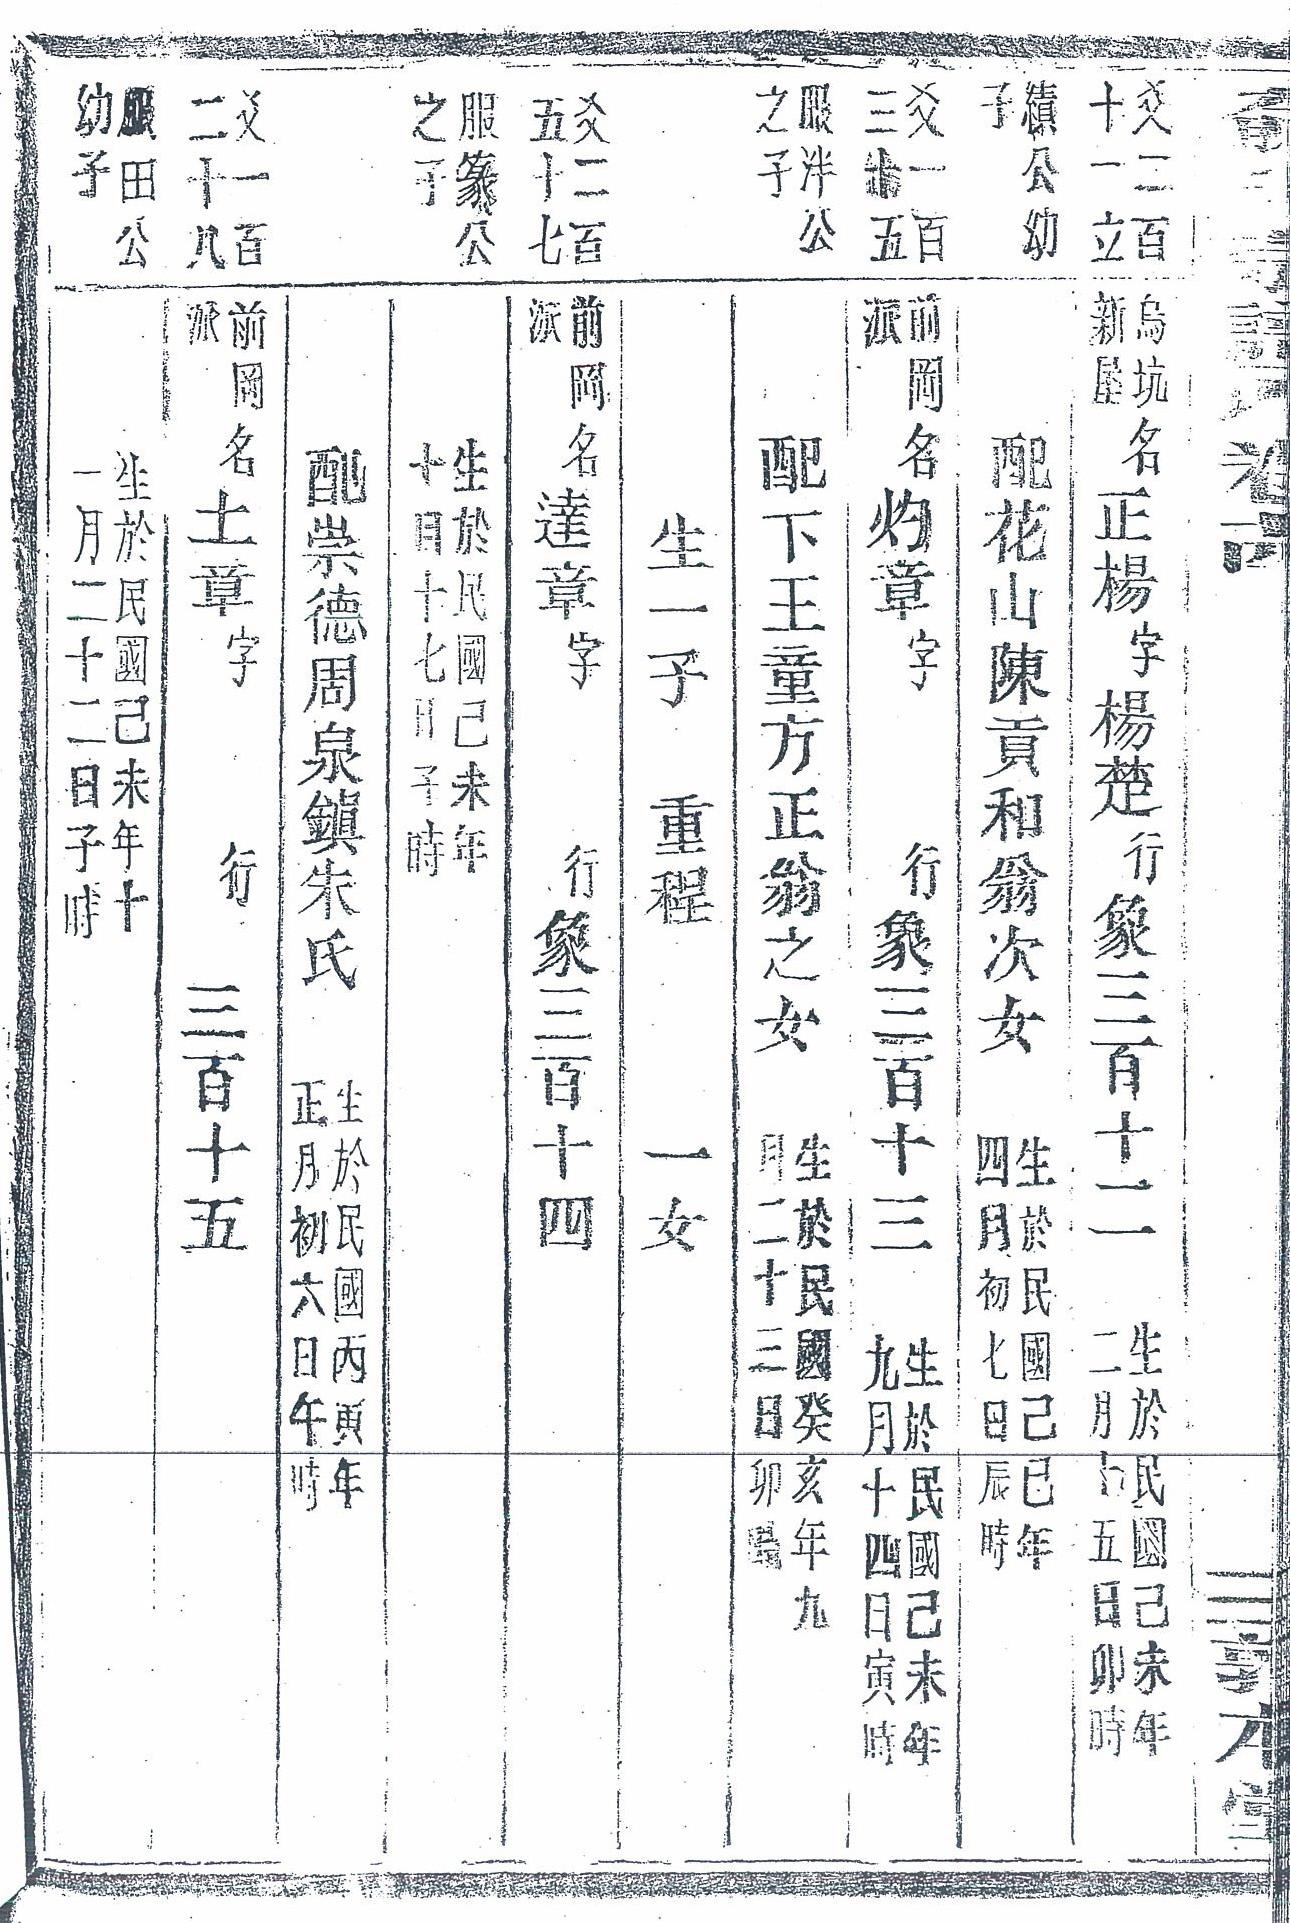 爻二百
十一立
績公幼
子
烏坑
新屋
名正楊字楊楚行象三百十二
生於民國己未年
二月十五日卯時
配花山陳貢和翁次女
生於民國己巳年
四月初七日辰時
爻一百
三十五
服泮公
之子
前岡
派
名灼章字 行象三百十三
生於民國己未年
九月十四日寅時
配下王童方正翁之女
生於民國癸亥年九
月二十三日卯時
生一子 重程 一女
爻二百
五十七
服篆公
之子
前岡
派
名達章字 行象三百十四
生於民國己未年
十日十七日子時
配崇德周泉鎮朱氏
生於民國丙寅年
正月初六日午時
爻一百
二十八
服田公
幼子
前岡
派
名土章字 行 三百十五
生於民國己未年十
一月二十二日子時